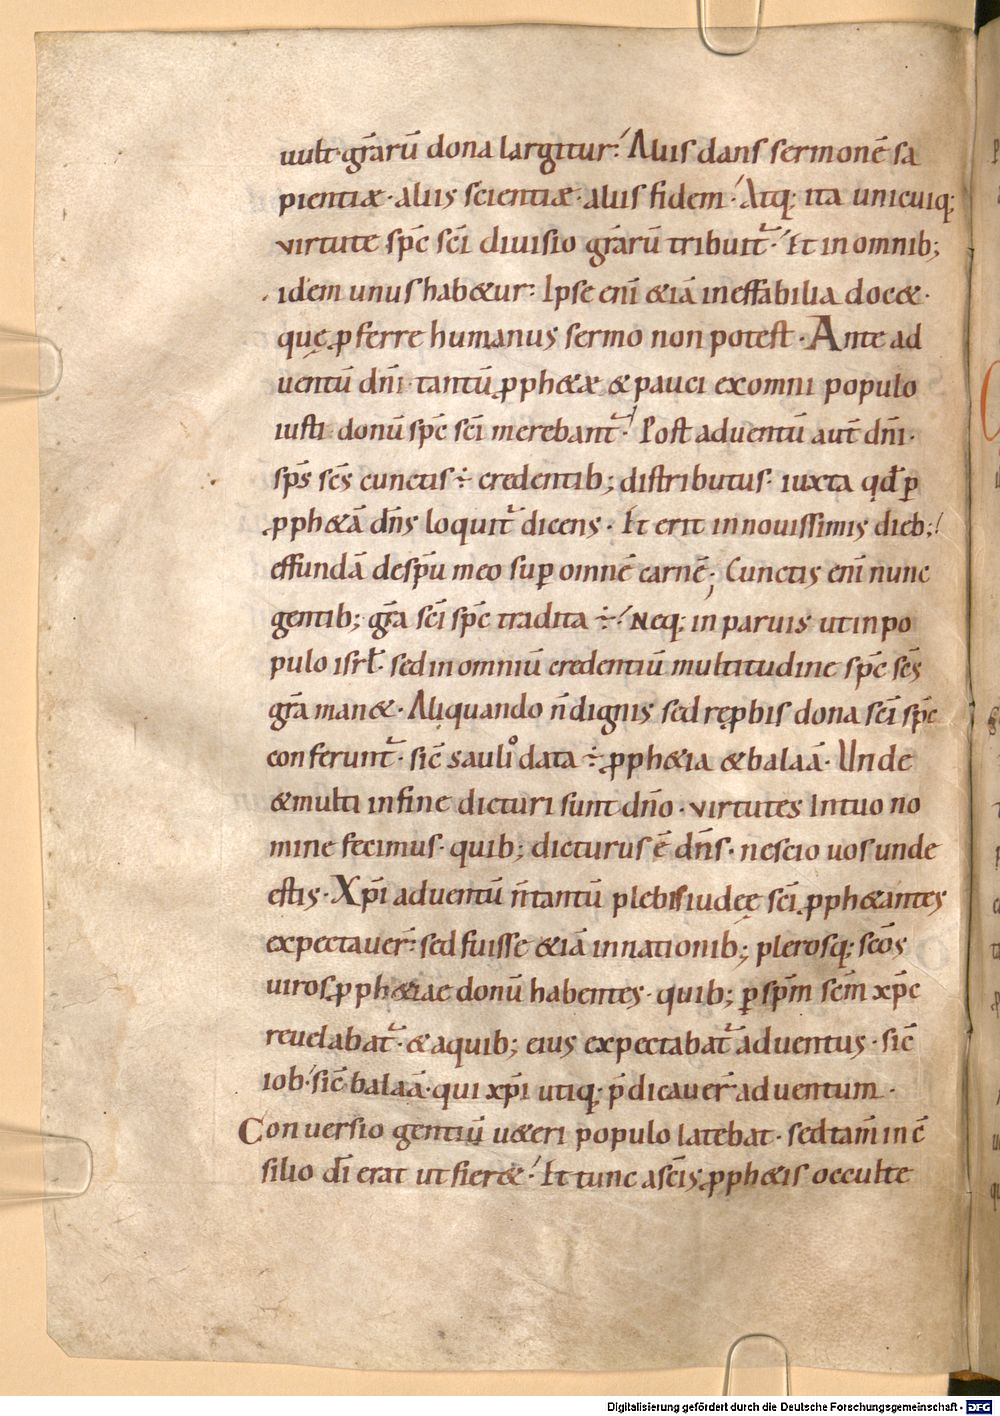 uult· gr̄arū dona largitur: Aliis dans sermonē sa
pientiæ· aliis scientiæ· aliis fidem· Atq; ita unicuiq;
virtute sp̄c sc̄i diuisio gr̄arū tribuit᷑· Et in omnib;
idem unus hab&ur: Ipse eni̅ &iā ineffabilia doc&·
quę ꝓferre humanus sermo non potest· Ante ad
uentū dn̄i· tantū ꝓph&æ & pauci ex omni populo
iusti donū sp̄c sc̄i merebant᷑· Post aduentū aut̄ dn̄i·
sp̄s sc̄s cunctis ÷ credentib; distributus· iuxta qđ ꝑ
ꝓph&ā dn̄s loquit᷑ dicens· Et erit in nouissimis dieb;
effundā de sp̄u meo suꝑ omnē carnē; Cunctis eni̅ nunc
gentib; gr̄a sc̄i sp̄c tradita ÷· Neq; in paruis ut in po
pulo isrł· sed in omniū credentiū multitudine sp̄c sc̄s
gr̄a man&· Aliquando n̄ dignis sed reꝓbis dona sc̄i sp̄c
conferunt᷑· sic̄ sauli° data ÷ ꝓph&ia & balaā· Unde
& multi in fine dicturi sunt dn̄o· virtutes In tuo no
mine fecimus· quib; dicturus ē dn̄s· nescio uos unde
estis· Xp̄i aduentū n̄ tantū plebis iudeę sc̄i ꝓph&antes
expectauer̄: sed fuisse &iā in nationib; plerosq; sc̄os
uiros ꝓph&iae donū habentes· quib; ꝑ sp̄m sc̄m xp̄c
reuelabat᷑· & a quib; eius expectabat᷑ aduentus· sic̄
iob· sic̄ balaā· qui xp̄i utiq; p̄dicauer̄ aduentum·
Conuersio gentiū u&eri populo latebat· sed tam̄ in c̄
silio dī erat ut fier&· Et tunc a sc̄is ꝓph&is occulte
Digitalisierung gefördert durch die Deutsche Forschungsgemeinschaft - DFG